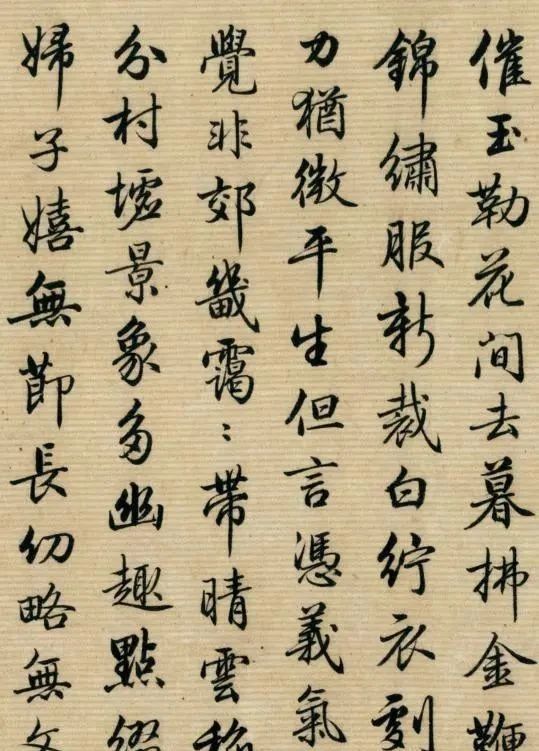 催玉勒花间去暮拂金鞭
錦繡服新裁白紵衣劇
力猶微平生但言憑義氣
覺非郊畿靄〻帶晴雲稀
分村墟景象多幽趣點綴
婦子嬉無節長幼略無文